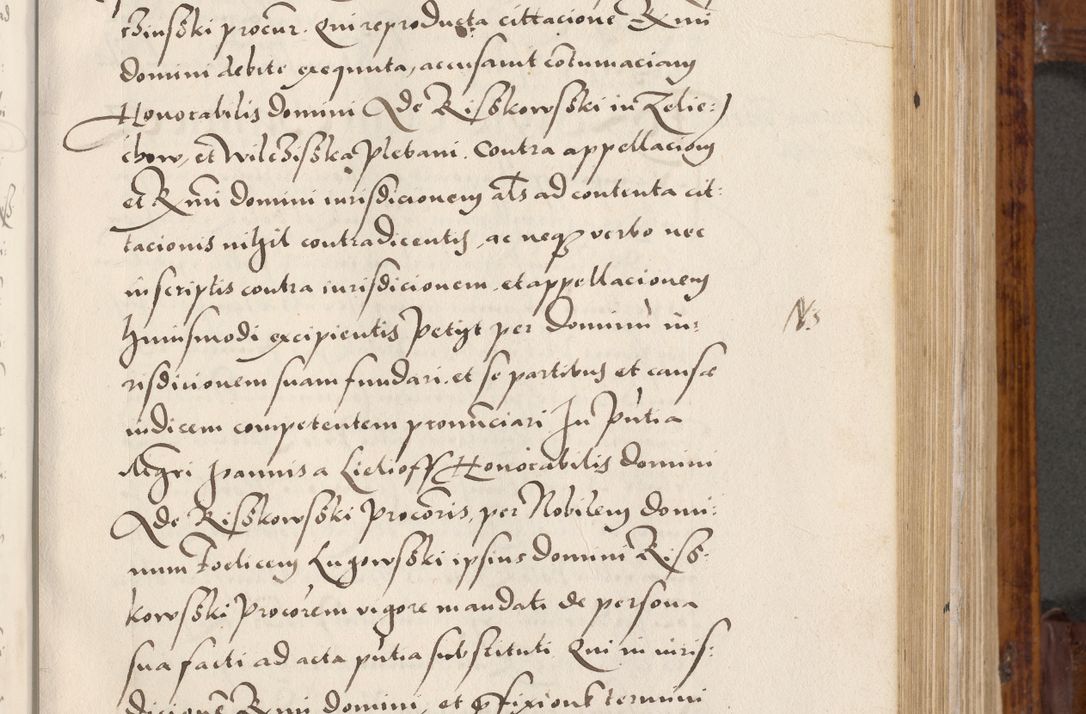 czinsski procur. Qui reproducta cittacione R mi
domini debite exequuta, accusavit cõtumaciam
Honorabilis domini A de Risskowsski in Zelie:
chow, et Wilczisska Plebani. Contra appellacionem
et R mi domini iurisdicionem als ad contenta cit:
tacionis nihil contradicentis, ac neque verbo nec
in scriptis contra iurisdicionem, et appellacionem
huiusmodi excipientis Petijt per Dominũ iu:
risdicionem suam fundari, et se partibus et causæ
iudicem competentem pronũciari In Pñtia
Mgri Joannis a Lielioff Honorabilis domini
A de Risskowsski Procõris, per Nobilem domi:
num Foelicem Lugowsski ipsius domini Riss:
kowsski Procõrem vigore mandati de persona
sua facti ad acta pñtia substituti. Qui in iuris:
dicionẽ R mi domini, et pfixionẽ termini
Ns